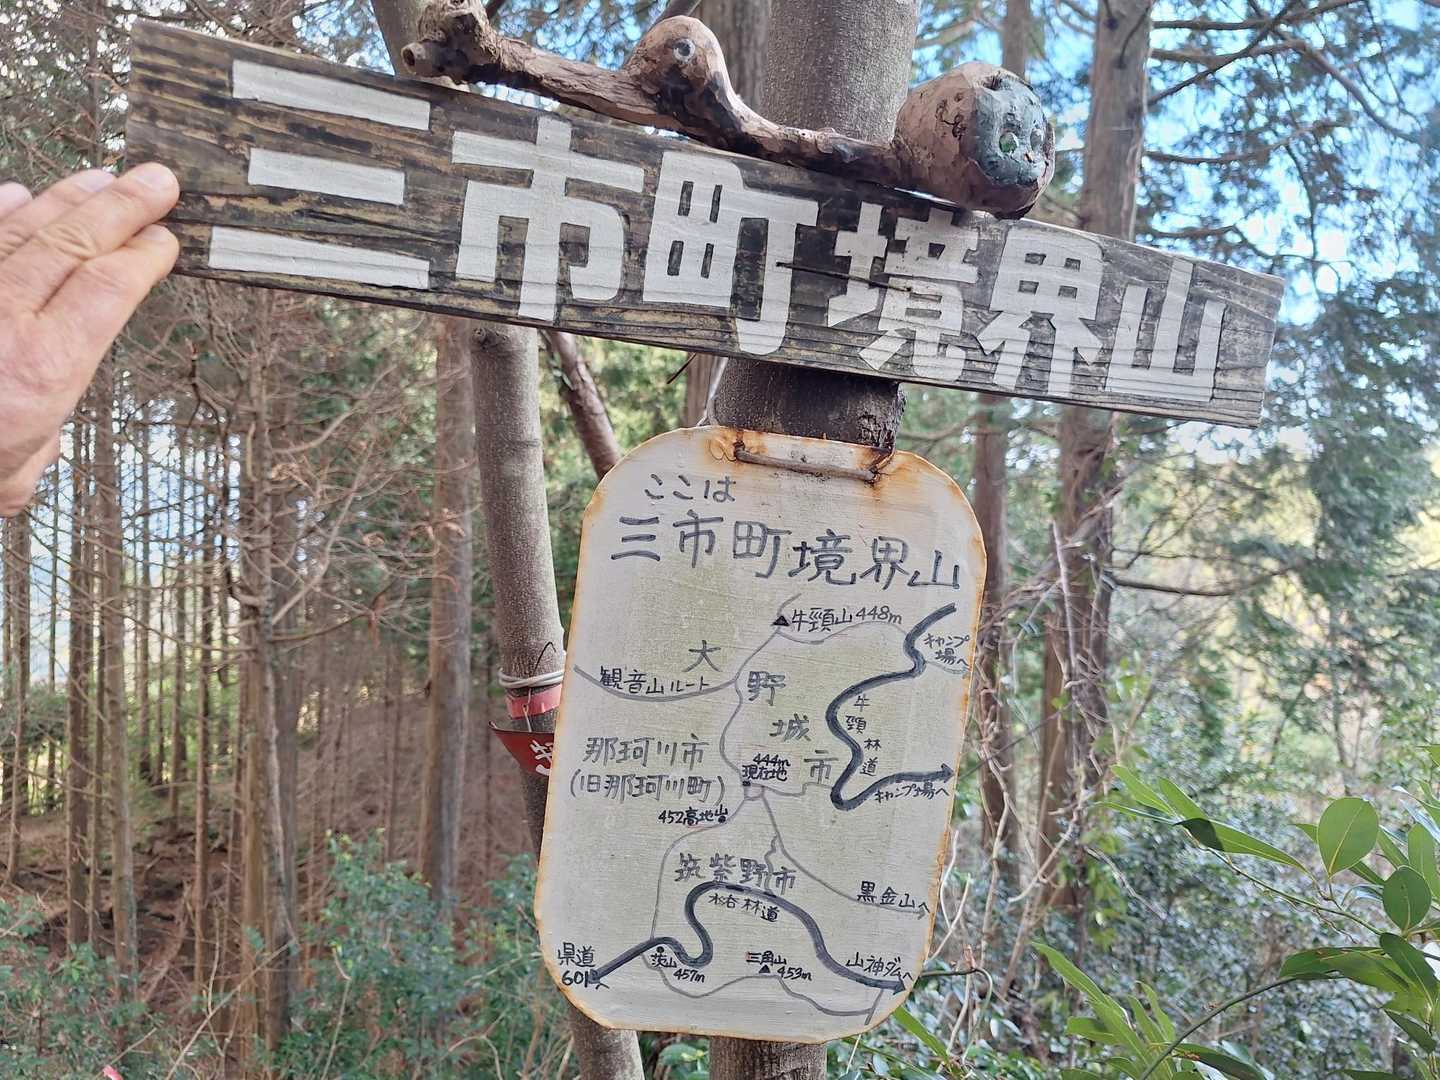 三市町境界山
ここは
三市町境界山
牛頸山 448m
キャンプ
場へ
大
野
城
市
観音山ルート
牛
頸
林
道
那珂川市
(旧那珂川町)
444m
現在地
キャンプ場へ
452高地
筑紫野市
林道
黒金山へ
県道
601号へ
457m
三角山
453m
山神ダムへ